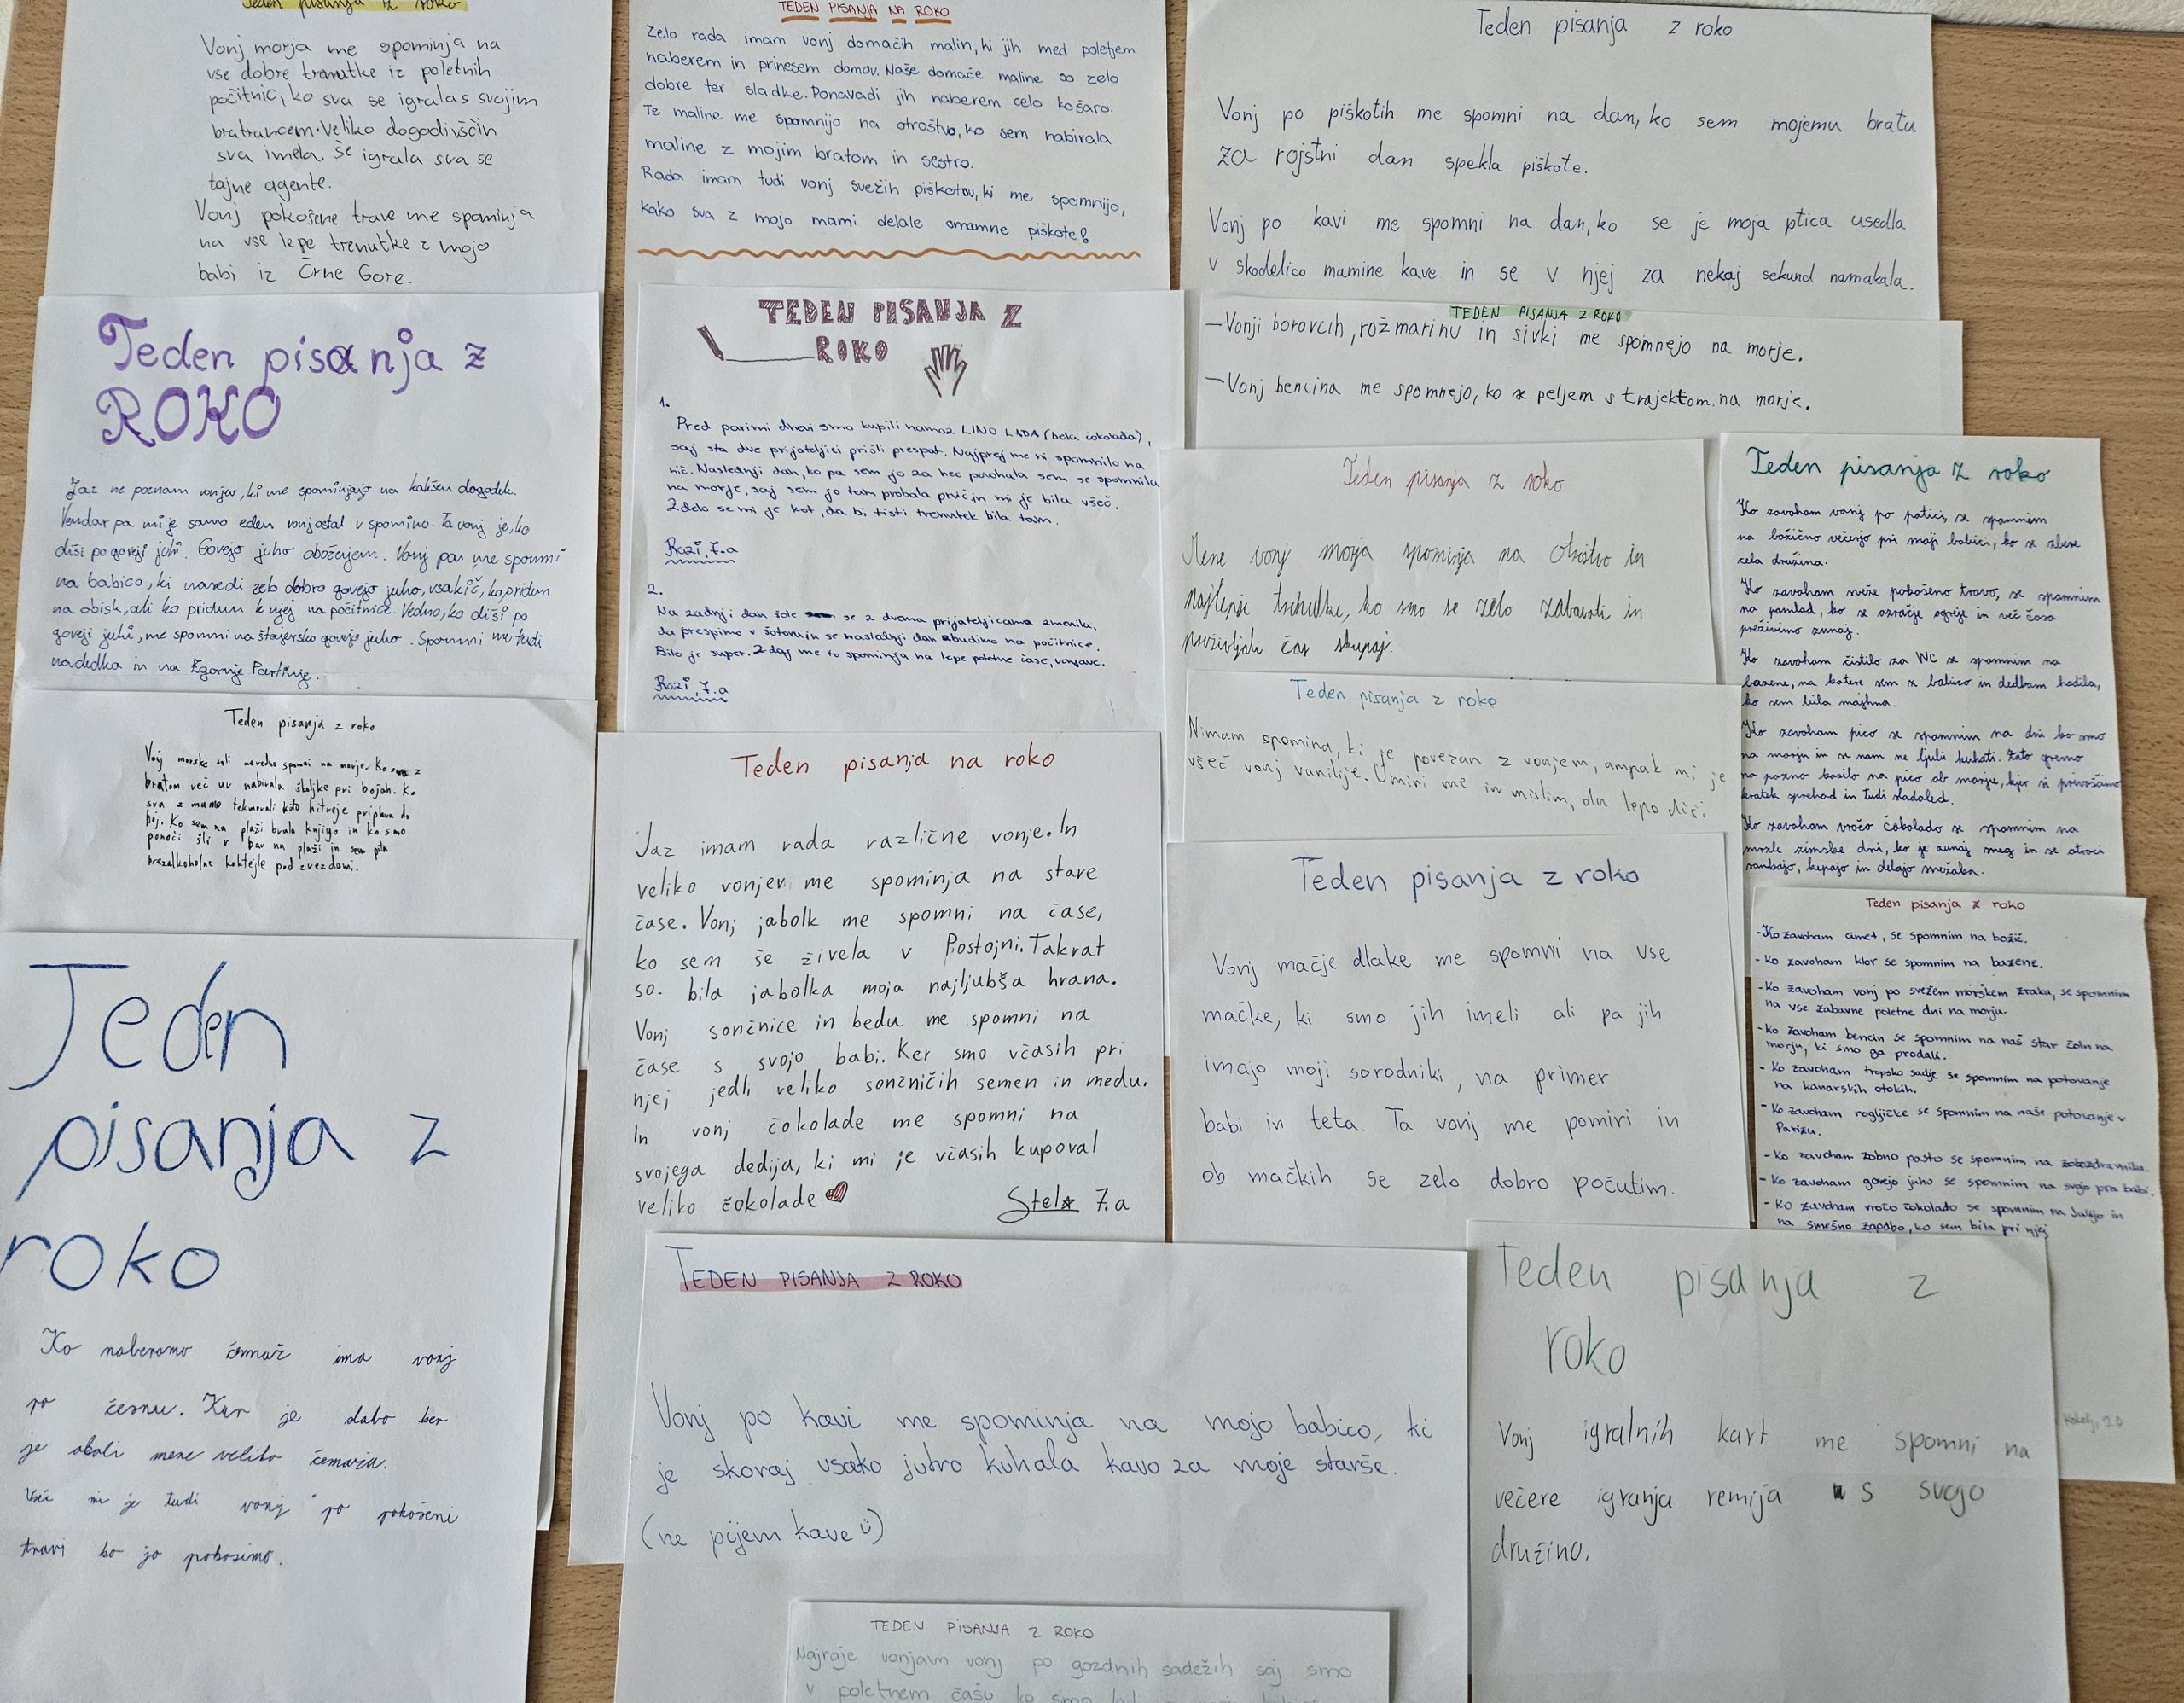 Teden pisanja iz roko
Vonj morja me spominja na
vse dobre trenutke iz poletnih
počitnic, ko sva se igralas svojim
bratrancem. Veliko dogodivščin
sva imela. Še igrala sva se
tajne agente.
Vonj pokošene trave me spominja
na vse lepe trenutke z mojo
babi iz Črne Gore.
Teden pisanja z
ROKO
Jaz ne poznam vonjev, ki me spominjajo na kakšen dogodek.
Vendar pa mi je samo eden vonj ostal v spominu. Ta vonj je, ko
diši po goveji juhi. Govejo juho obožujem. Vonj pa me spomni
na babico, ki naredi zelo dobro govejo juho, vsakič, ko pridem
na obisk, ali ko pridem k njej na počitnice. Vedno, ko diši po
goveji juhi, me spomni na štajersko govejo juho. Spomni me tudi
na dedka in na Zgornje Partinje.
Teden pisanja z roko
Vonj morske soli nevedno spomni na morje. Ko z
bratom več ur nabirala školjke pri bojah. Ko
sva z mamo tekmovali kdo hitreje priplava do
boj. Ko sem na plaži brala knjigo in ko smo
ponoči šli v bar na plaži in sem pila
brezalkoholne koktejle pod zvezdami.
Teden
pisanja z
roko
Ko naberamo čemaž ima vonj
po česnu. Kar je slabo ker
je okoli mene veliko čemaža.
Všeč mi je tudi vonj po pokošeni
travi ko jo pokosimo.
TEDEN PISANJA NA ROKO
Zelo rada imam vonj domačih malin, ki jih med poletjem
naberem in prinesem domov. Naše domače maline so zelo
dobre ter sladke. Ponavadi jih naberem celo košaro.
Te maline me spomnijo na otroštvo, ko sem nabirala
maline z mojim bratom in sestro.
Rada imam tudi vonj svežih piškotov, ki me spomnijo,
kako sva z mojo mami delale omamne piškote!
TEDEN PISANJA Z
ROKO
1.
Pred parimi dnevi smo kupili namaz LINO LADA (bela čokolada),
saj sta dve prijateljici prišli prespat. Najprej me ni spomnilo na
nič. Naslednji dan, ko pa sem jo za hec povohala sem se spomnila
na morje, saj sem jo tam probala prvič in mi je bila všeč.
Zdelo se mi je kot, da bi tisti trenutek bila tam.
Rozi, 7.a
2.
Na zadnji dan šole se z dvema prijateljicama zmenila,
da prespimo v šotoru in se naslednji dan zbudimo na počitnice.
Bilo je super. Zdaj me to spominja na lepe poletne čase, vonjave.
Rozi, 7.a
Teden pisanja na roko
Jaz imam rada različne vonje. In
veliko vonjev me spominja na stare
čase. Vonj jabolk me spomni na čase,
ko sem še živela v Postojni. Takrat
so bila jabolka moja najljubša hrana.
Vonj sončnice in bedu me spomni na
čase s svojo babi. Ker smo včasih pri
njej jedli veliko sončničih semen in medu.
In vonj čokolade me spomni na
svojega dedija, ki mi je včasih kupoval
veliko čokolade
Stela 7.a
TEDEN PISANJA Z ROKO
Vonj po kavi me spominja na mojo babico, ki
je skoraj vsako jutro kuhala kavo za moje starše.
(ne pijem kave)
TEDEN PISANJA Z ROKO
Najraje vonjam vonj po gozdnih sadežih saj smo
v poletnem času ko smo
Teden pisanja z roko
Vonj po piškotih me spomni na dan, ko sem mojemu bratu
za rojstni dan spekla piškote.
Vonj po kavi me spomni na dan, ko se je moja ptica usedla
v skodelico mamine kave in se v njej za nekaj sekund namakala.
TEDEN PISANJA Z ROKO
– Vonji borovcih, rožmarinu in sivki me spomnejo na morje.
– Vonj bencina me spomnejo, ko se peljem s trajektom na morje.
Teden pisanja z roko
Mene vonj morja spominja na otroštvo in
najlepše trenutke, ko smo se zelo zabavali in
preživljali čas skupaj.
Teden pisanja z roko
Nimam spomina, ki je povezan z vonjem, ampak mi je
všeč vonj vanilije. Umiri me in mislim, da lepo diši.
Teden pisanja z roko
Vonj mačje dlake me spomni na vse
mačke, ki smo jih imeli ali pa jih
imajo moji sorodniki, na primer
babi in teta. Ta vonj me pomiri in
ob mačkih se zelo dobro počutim.
Teden pisanja z
roko
Vonj igralnih kart me spomni na
večere igranja remija s svojo
družino.
Teden pisanja z roko
Ko zavoham vonj po potici, se spomnim
na božično večerjo pri moji babici, ko se zbere
cela družina.
Ko zavoham sveže pokošeno travo, se spomnim
na pomlad, ko se ozračje ogreje in več časa
preživimo zunaj.
Ko zavoham čistilo za WC se spomnim na
bazene, na katere sem z babico in dedkom hodila,
ko sem bila majhna.
Ko zavoham pico se spomnim na dni ko smo
na morju in se nam ne ljubi kuhati. Zato gremo
na pozno kosilo na pico ob morju, kjer si privoščimo
kratek sprehod in tudi sladoled.
Ko zavoham vročo čokolado se spomnim na
mrzle zimske dni, ko je zunaj sneg in se otroci
sankajo, kepajo in delajo snežaka.
Teden pisanja z roko
- Ko zavoham cimet, se spomnim na božič.
- Ko zavoham klor se spomnim na bazene.
- Ko zavoham vonj po svežem morskem zraku, se spomnim
na vse zabavne poletne dni na morju.
- Ko zavoham bencin se spomnim na naš star čoln na
morju, ki smo ga prodali.
- Ko zavoham tropsko sadje se spomnim na potovanje
na kanarskih otokih.
- Ko zavoham rogljičke se spomnim na naše potovanje v
Parizu.
- Ko zavoham zobno pasto se spomnim na zobozdravnika.
- Ko zavoham govejo juho se spomnim na svojo pra babi.
- Ko zavoham vročo čokolado se spomnim na Julijo in
na smešno zgodbo, ko sem bila pri njej